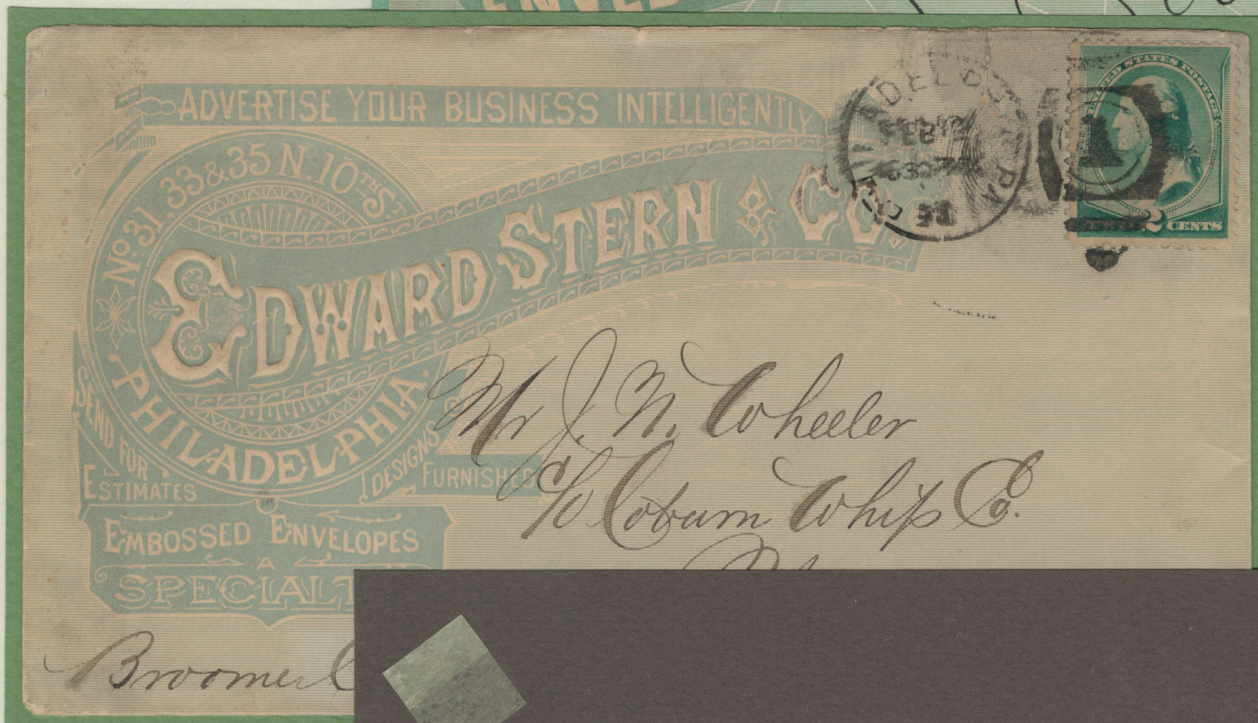 ENVEL
ADVERTISE YOUR BUSINESS INTELLIGENTLY
No. 31 33 & 35 N. 10TH ST.
EDWARD STERN & CO.
PHILADELPHIA.
SEND FOR
ESTIMATES
DESIGNS
FURNISHED
EMBOSSED ENVELOPES
A
SPECIALT
PHILADELPHIA PA
FEB
UNITED STATES POSTAGE
2 CENTS
1
Mr J. N. Wheeler
c/o Coburn Whip Co.
Broome C